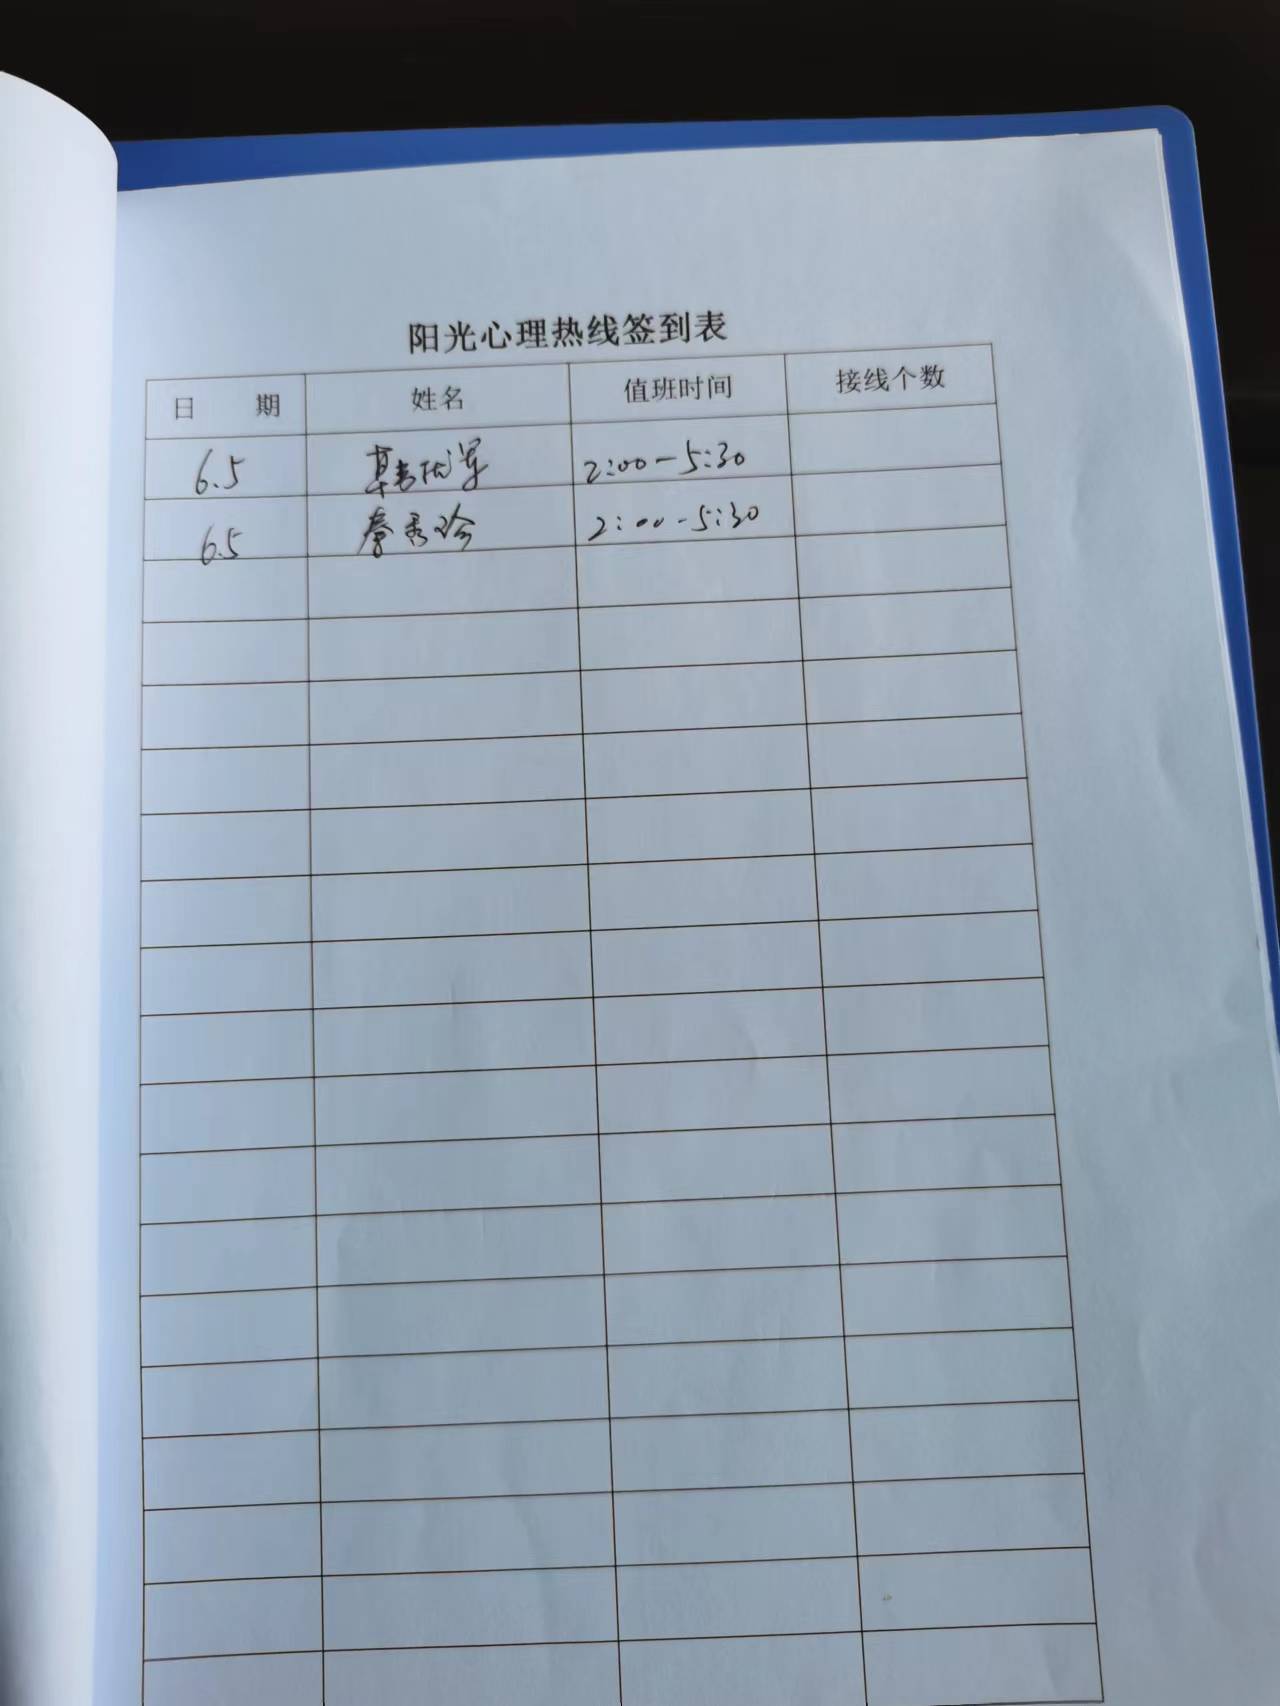 阳光心理热线签到表
日 期 姓名 值班时间 接线个数
6.5 2:00-5:30
6.5 秦秀珍 2:00-5:30